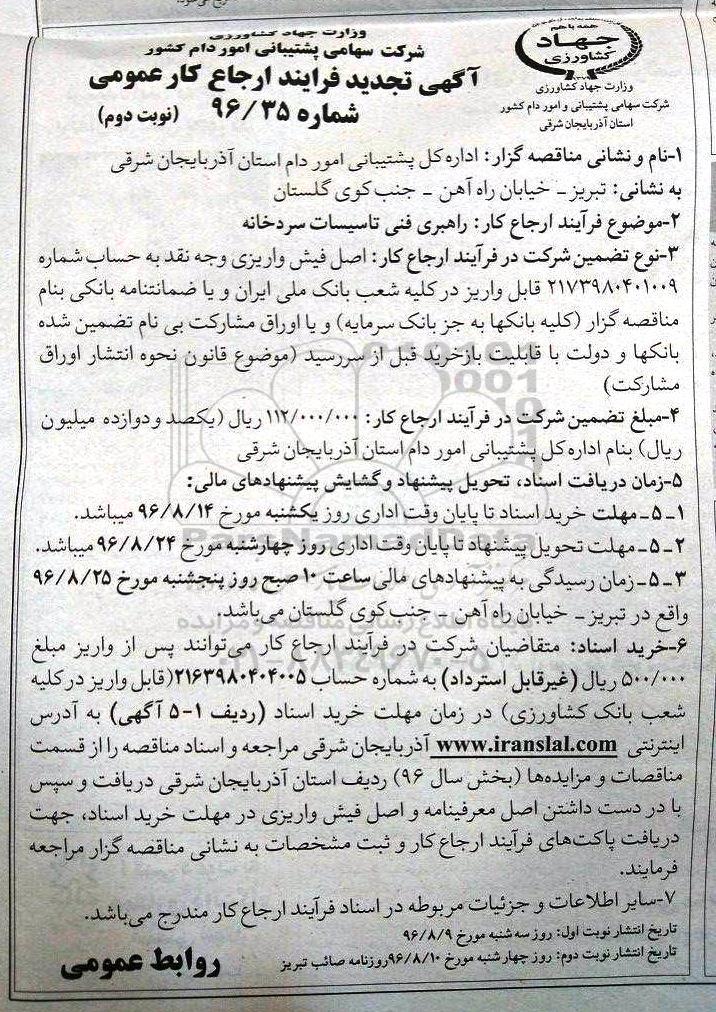 همه با هم
جهاد
کشاورزی
وزارت جهاد کشاورزی
شرکت سهامی پشتیبانی و امور دام کشور
استان آذربایجان شرقی
وزارت جهاد کشاورزی
شرکت سهامی پشتیبانی امور دام کشور
آگهی تجدید فرایند ارجاع کار عمومی
شماره ۹۶/۳۵ (نوبت دوم)
۱-نام و نشانی مناقصه گزار: اداره کل پشتیبانی امور دام استان آذربایجان شرقی
به نشانی: تبریز - خیابان راه آهن - جنب کوی گلستان
۲-موضوع فرآیند ارجاع کار: راهبری فنی تاسیسات سردخانه
۳-نوع تضمین شرکت در فرآیند ارجاع کار: اصل فیش واریزی وجه نقد به حساب شماره
۲۱۷۳۹۸۰۴۰۱۰۰۹ قابل واریز در کلیه شعب بانک ملی ایران و یا ضمانتنامه بانکی بنام
مناقصه گزار (کلیه بانکها به جز بانک سرمایه) و یا اوراق مشارکت بی نام تضمین شده
بانکها و دولت با قابلیت بازخرید قبل از سررسید (موضوع قانون نحوه انتشار اوراق
مشارکت)
۴-مبلغ تضمین شرکت در فرآیند ارجاع کار: ۱۱۲/۰۰۰/۰۰۰ ریال (یکصد و دوازده میلیون
ریال) بنام اداره کل پشتیبانی امور دام استان آذربایجان شرقی
۵-زمان دریافت اسناد، تحویل پیشنهاد و گشایش پیشنهادهای مالی:
۱-۵- مهلت خرید اسناد تا پایان وقت اداری روز یکشنبه مورخ ۹۶/۸/۱۴ میباشد.
۲-۵- مهلت تحویل پیشنهاد تا پایان وقت اداری روز چهارشنبه مورخ ۹۶/۸/۲۴ میباشد.
۳-۵- زمان رسیدگی به پیشنهادهای مالی ساعت ۱۰ صبح روز پنجشنبه مورخ ۹۶/۸/۲۵
واقع در تبریز - خیابان راه آهن - جنب کوی گلستان می‌باشد.
۶-خرید اسناد: متقاضیان شرکت در فرآیند ارجاع کار می‌توانند پس از واریز مبلغ
۵۰۰/۰۰۰ ریال (غیرقابل استرداد) به شماره حساب ۲۱۶۳۹۸۰۴۰۴۰۰۵(قابل واریز در کلیه
شعب بانک کشاورزی) در زمان مهلت خرید اسناد (ردیف ۱-۵ آگهی) به آدرس
اینترنتی www.iranslal.com آذربایجان شرقی مراجعه و اسناد مناقصه را از قسمت
مناقصات و مزایده‌ها (بخش سال ۹۶) ردیف استان آذربایجان شرقی دریافت و سپس
با در دست داشتن اصل معرفینامه و اصل فیش واریزی در مهلت خرید اسناد، جهت
دریافت پاکت‌های فرآیند ارجاع کار و ثبت مشخصات به نشانی مناقصه گزار مراجعه
فرمایند.
۷-سایر اطلاعات و جزئیات مربوطه در اسناد فرآیند ارجاع کار مندرج می‌باشد.
تاریخ انتشار نوبت اول: روز سه شنبه مورخ ۹۶/۸/۹
تاریخ انتشار نوبت دوم: روز چهارشنبه مورخ ۹۶/۸/۱۰روزنامه صائب تبریز
روابط عمومی
ParsNamadData